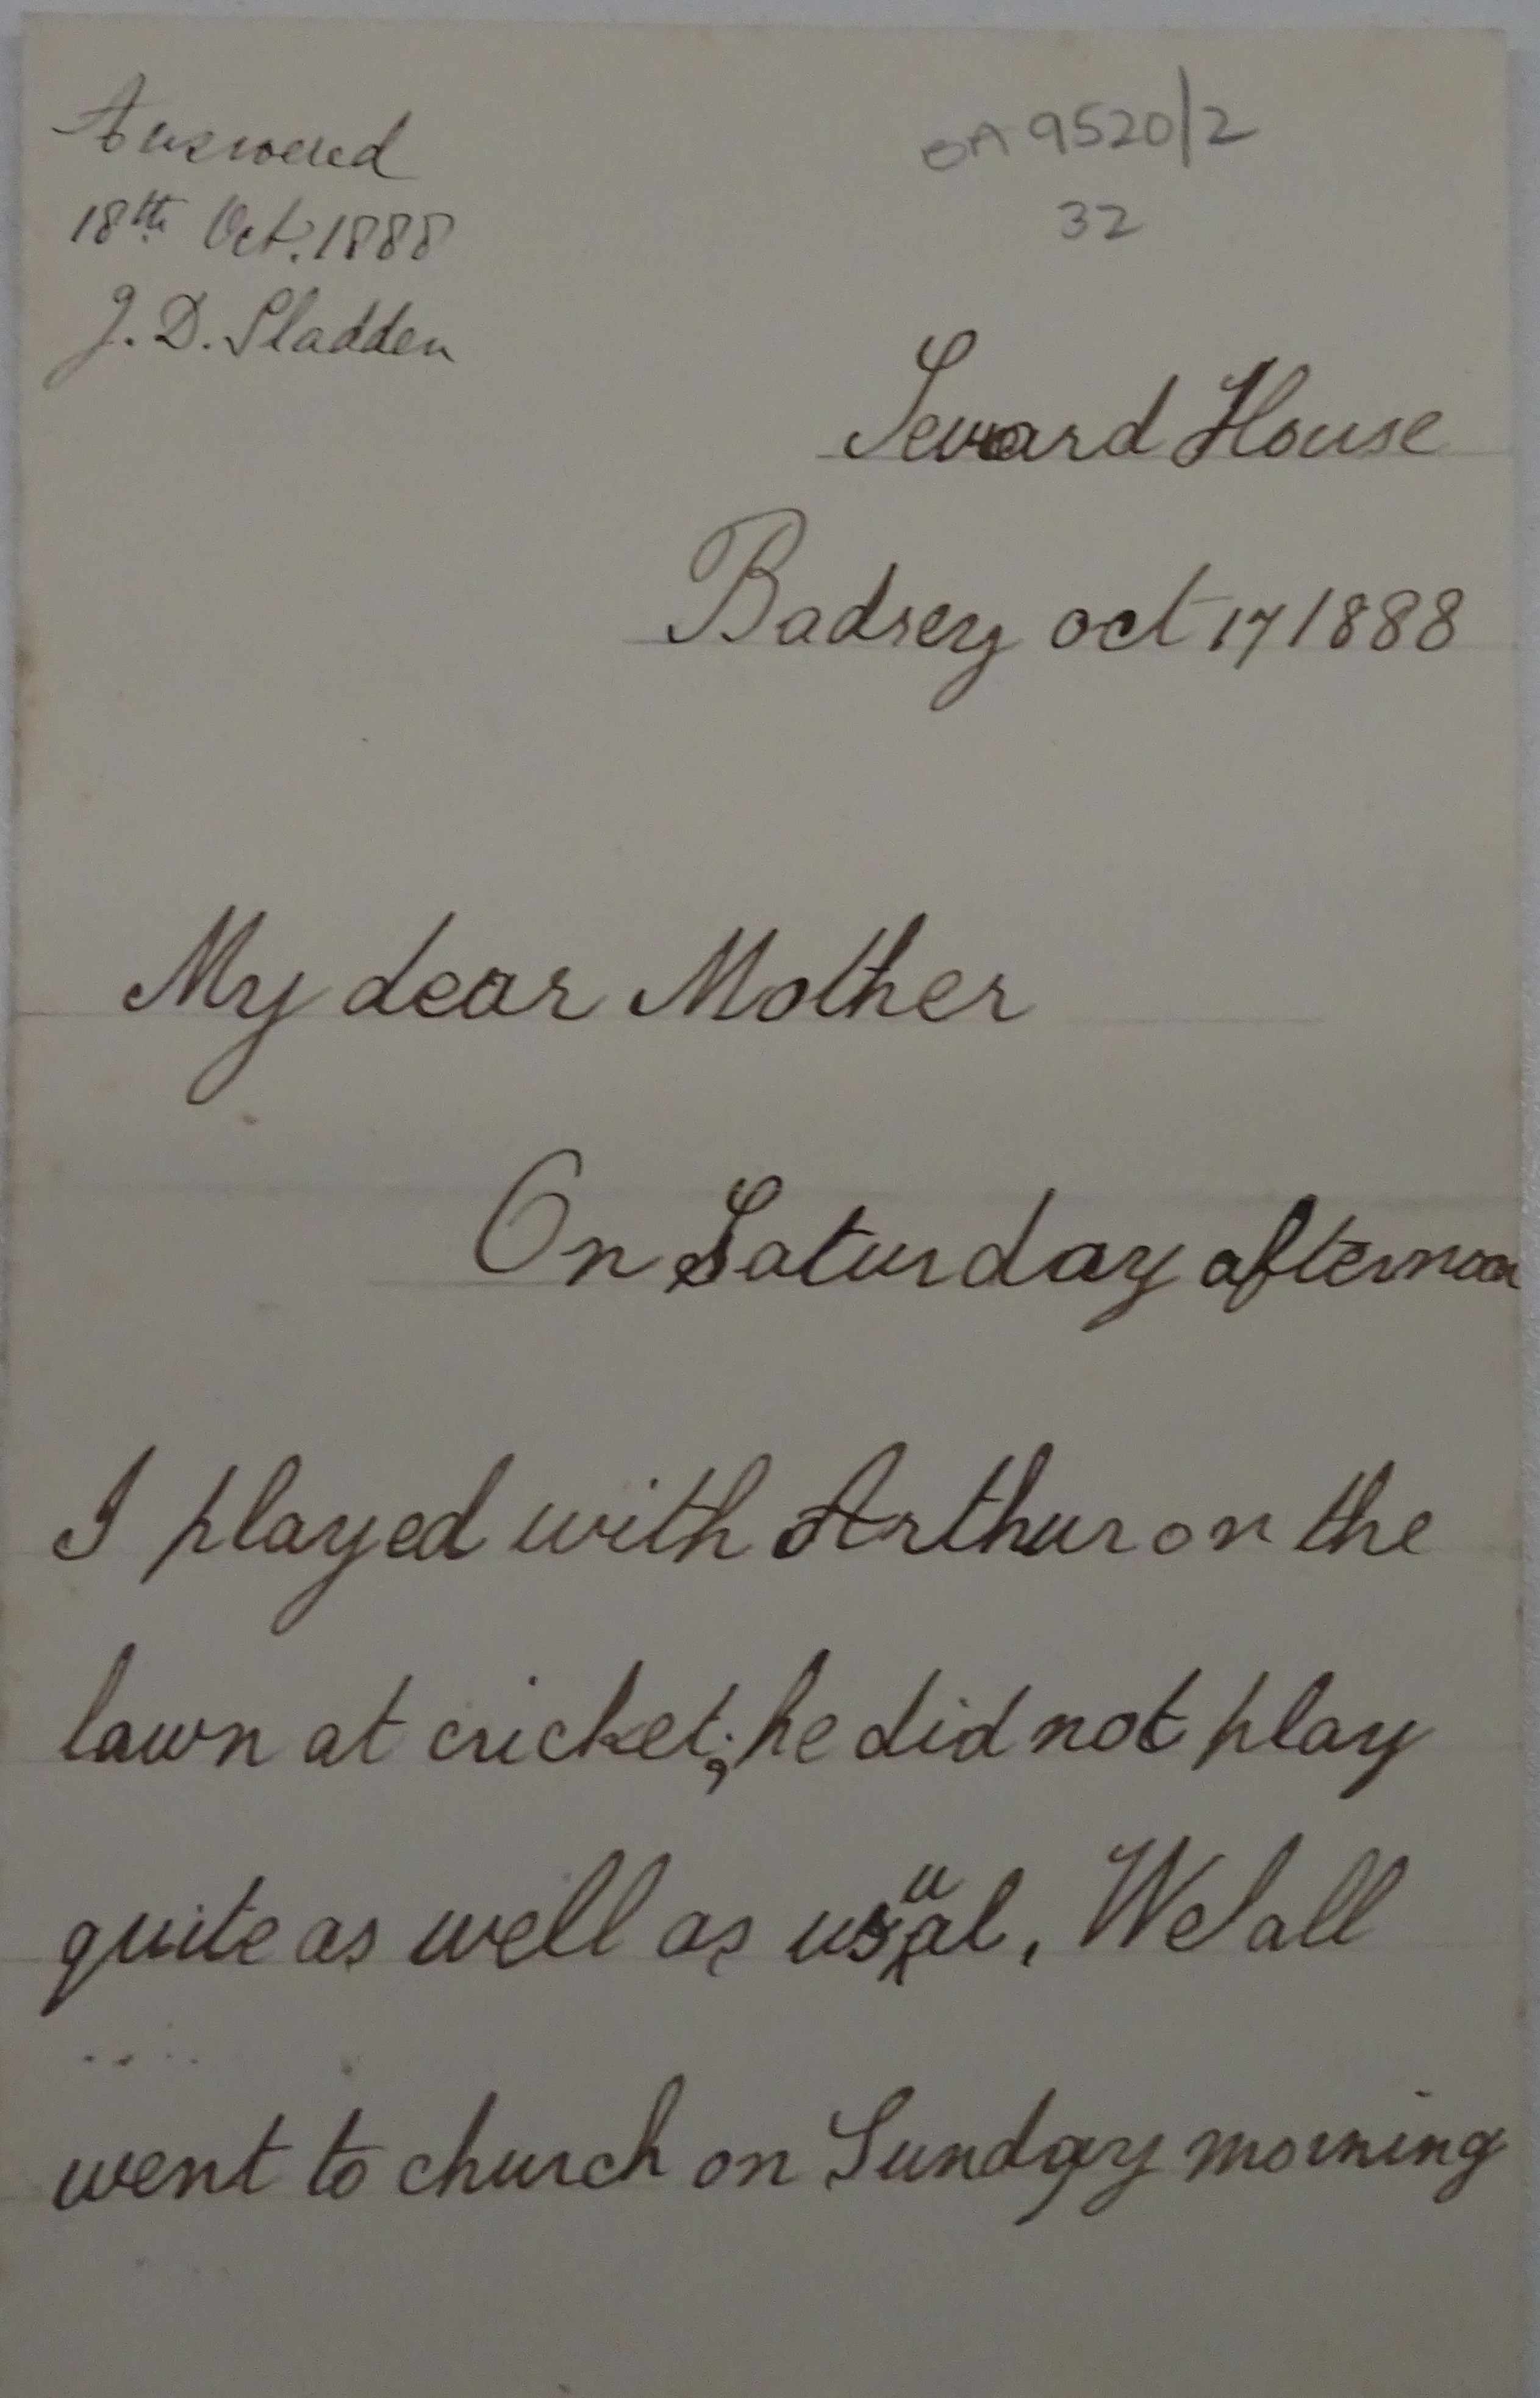 Answered
18th Oct. 1888
J. D. Sladden
BA 9520/2
32
Seward House
Badsey oct 17 1888
My dear Mother
On Saturday afternoon
I played with Arthur on the
lawn at cricket; he did not play
quite as well as usual. We all
went to church on Sunday morning